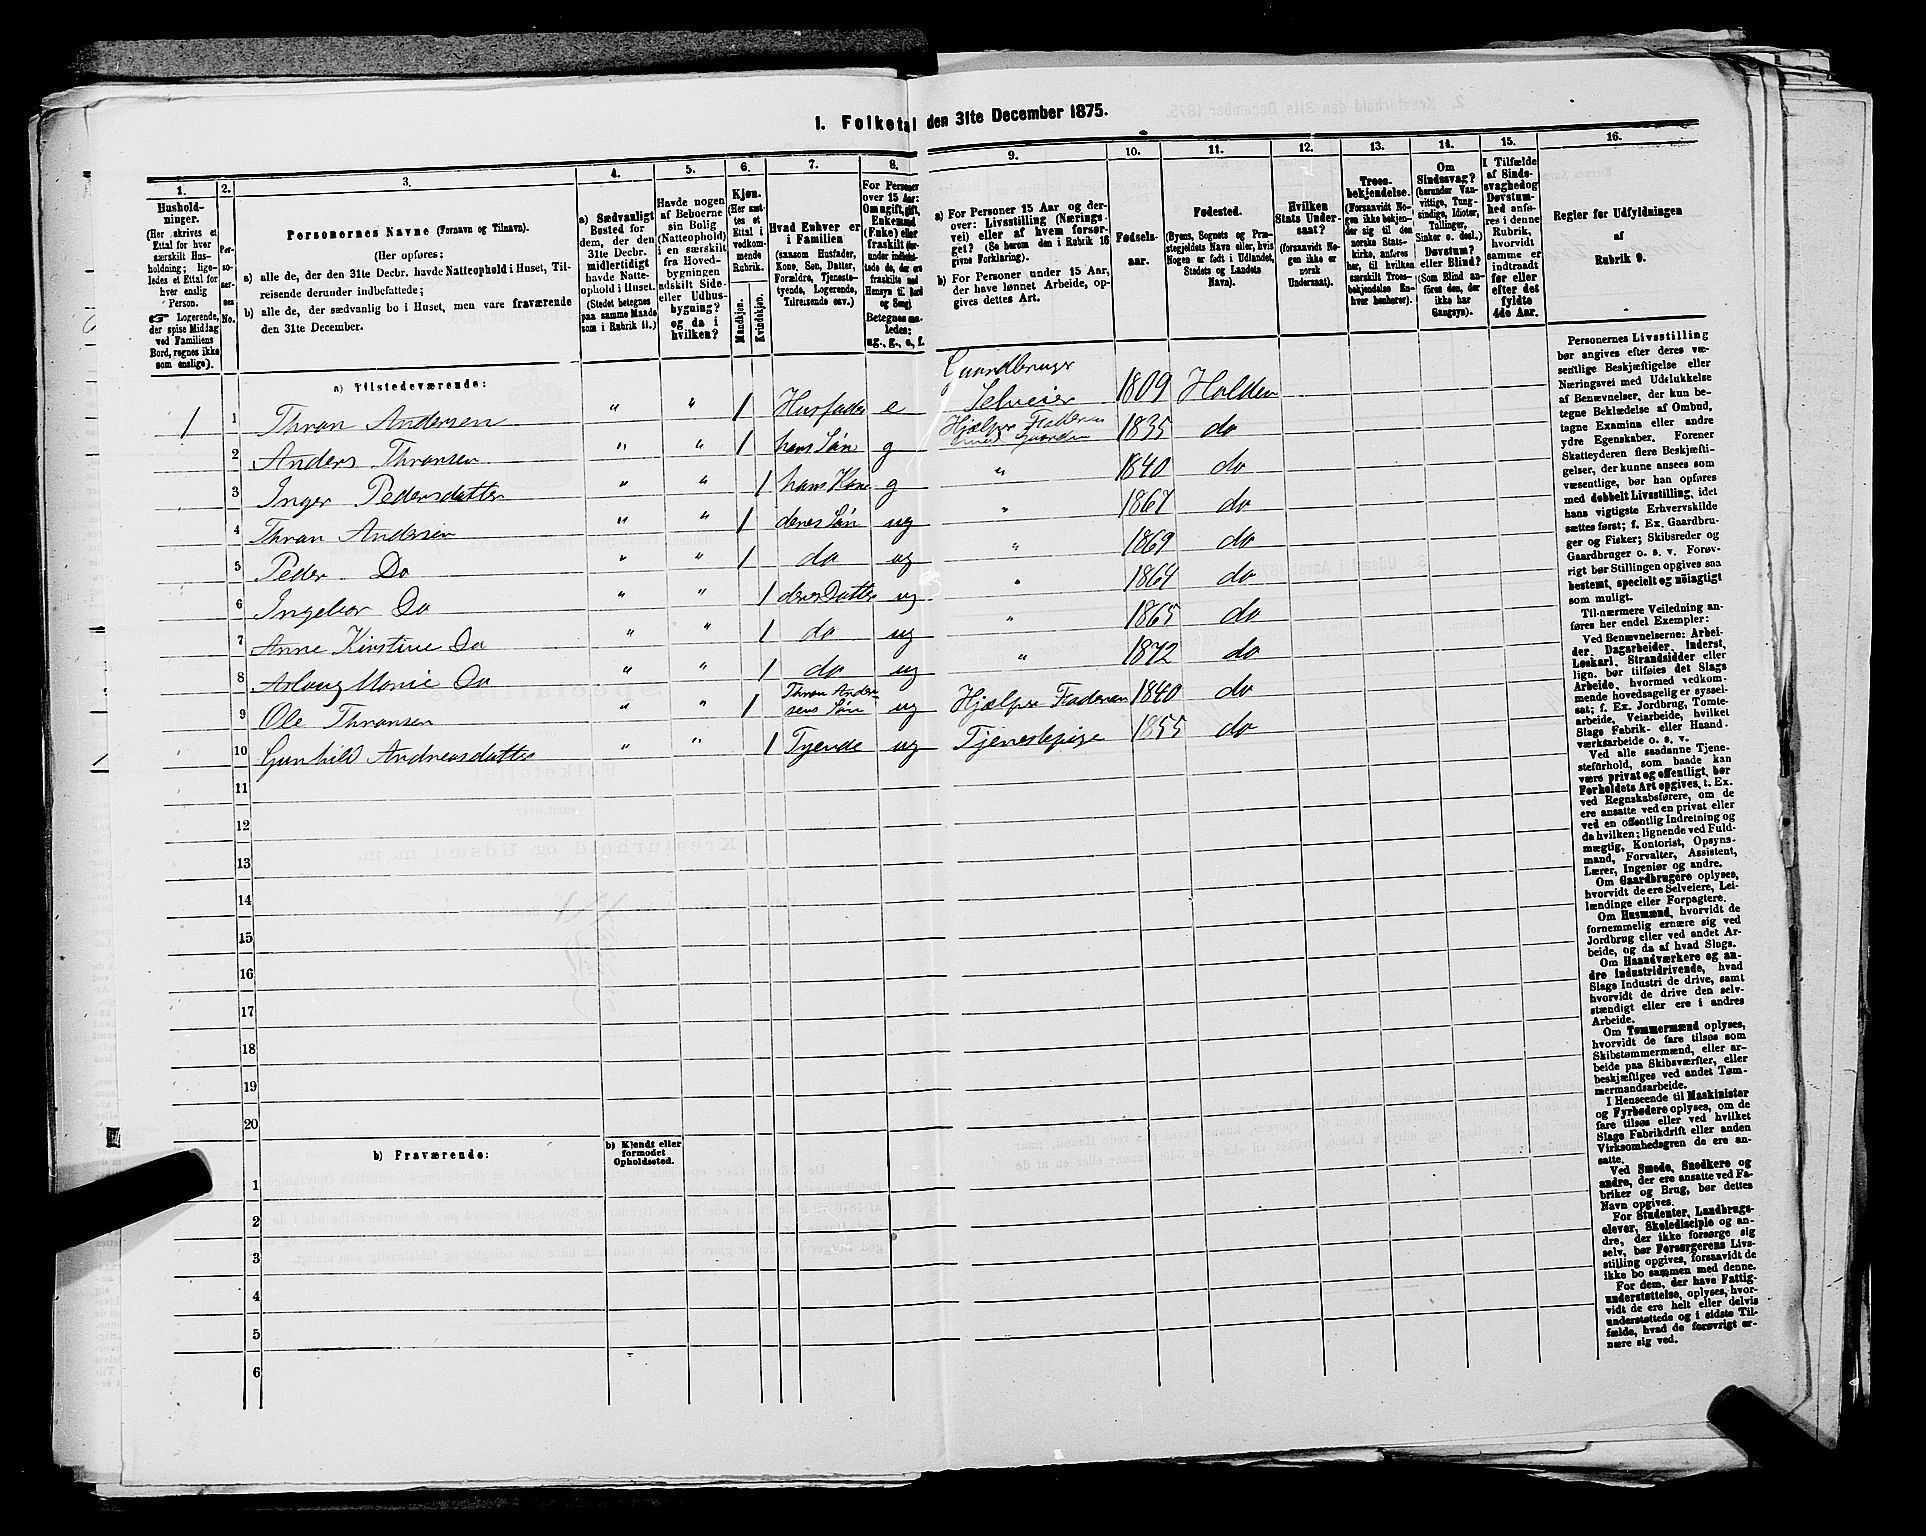 I. Folketal den 31te December 1875.
1. 2. 3. 4. 5. 6. 7. 8. 9. 10. 11. 12. 13. 14. 15. 16.
Hushold-
ninger.
(Her skrives et
Ettal for hver
særskilt Hus-
holdning; lige-
ledes et Ettal for
hver enslig
Person.
☞ Logerende,
der spise Middag
ved Familiens
Bord, regnes ikke
som enslige).
Per-
so-
ner-
nes
No.
Personernes Navne (Fornavn og Tilnavn).
(Her opføres:
a) alle de, der den 31te Decbr. havde Natteophold i Huset, Til-
reisende derunder indbefattede;
b) alle de, der sædvanlig bo i Huset, men vare fraværende
den 31te December.
a) Sædvanligt
Bosted for
dem, der den
31te Decbr.
midlertidigt
havde Natte-
ophold i Huset.
(Stedet betegnes
paa samme Maade
som i Rubrik 11.)
Havde nogen
af Beboerne
sin Bolig
(Natteophold)
i en særskilt
fra Hoved-
bygningen
adskilt Side-
eller Udhus-
bygning?
og da i
hvilken?
Kjøn.
(Her sæt-
tes et
Ettal i
vedkom-
mende
Rubrik.
Mandkjøn.
Kvindekjøn.
Hvad Enhver er
i Familien
(saasom Husfader,
Kone, Søn, Datter,
Forældre, Tjeneste-
tyende, Logerende,
Tilreisende osv.)
For Personer
over 15 Aar:
Om ugift, gift,
Enkemand
(Enke) eller
fraskilt (for-
under indbefat-
tede de, der ere
fraskilte med
Hensyn til Bord
og Seng)
Betegnes saa-
ledes:
ug., g., e., f.
a) For Personer 15 Aar og der-
over: Livsstilling (Nærings-
vei) eller af hvem forsør-
get? (Se herom den i Rubrik 16
givne Forklaring).
b) For Personer under 15 Aar,
der have lønnet Arbeide, op-
gives dettes Art.
Fødsels-
aar.
Fødested.
(Byens, Sognets og Præ-
stegjeldets Navn eller, hvis
Nogen er født i Udlandet,
Stedets og Landets
Navn).
Hvilken
Stats Under-
saat?
(forsaavidt No-
gen ikke er
norsk
Undersaat).
Troes-
bekjendelse.
(Forsaavidt No-
gen ikke bekjen-
der sig til den
norske Stats-
kirke, anføres
her, til hvilken
særskilt Troes-
bekjendelse En-
hver henhører).
Om
Sindssvag?
(herunder Van-
vittige, Tung-
sindige, Idioter,
Tullinger,
Sinker o. desl.)
Døvstum?
eller Blind?
(Som Blind an-
føres den, der
ikke har
Gangsyn).
I Tilfælde
af Sinds-
svaghed og
Døvstum-
hed anfø-
res i denne
Rubrik,
hvorvidt
samme er
indtraadt
før eller
efter det
fyldte
4de Aar.
Regler for Udfyldningen
af
Rubrik 9.
a) Tilstedeværende:
1 1 Thron Andersen " " 1 Husfader e Gaardbruger Selveier 1809 Holden
2 Anders Thronsen " " 1 hans Søn g Hjælper Faderen med Gaarden 1835 do
3 Inger Pedersdatter " " 1 hans Kone g " 1840 do
4 Thron Andersen " " 1 deres Søn ug " 1867 do
5 Peder Do " " 1 do ug " 1869 do
6 Ingebor Do " " 1 deres Datter ug " 1864 do
7 Anne Kirstine Do " " 1 do ug " 1865 do
8 Aslaug Marie Do " " 1 do ug " 1872 do
9 Ole Thronsen " " 1 Thron Andersens Søn ug Hjælper Faderen 1840 do
10 Gunhild Andreasdatter " " 1 Tyende ug Tjenestepige 1855 do
11
12
13
14
15
16
17
18
19
20
b) Fraværende:
b) Kjendt eller
formodet
Opholdssted.
1
2
3
4
5
6
Personernes Livsstilling
bør angives efter deres væ-
sentlige Beskjæftigelse eller
Næringsvei med Udelukkelse
af Benævnelser, der kun be-
tegne Beklædelse af Ombud,
tagne Examina eller andre
ydre Egenskaber. Forener
Skatteyderen flere Beskjæfti-
gelser, der kunne ansees som
væsentlige, bør han opføres
med dobbelt Livsstilling, idet
hans vigtigste Erhvervskilde
sættes først; f. Ex. Gaardbru-
ger og Fisker; Skibsreder og
Gaardbruger o. s. v. Forøv-
rigt bør Stillingen opgives saa
bestemt, specielt og nøiagtigt
som muligt.
Til nærmere Veiledning an-
føres her endel Exempler:
Ved Benævnelserne: Arbei-
der, Dagarbeider, Inderst,
Løskarl, Strandsidder eller
lign. bør tilføies det Slags
Arbeide, hvormed vedkom-
mende hovedsagelig er syssel-
sat; f. Ex. Jordbrug, Tomte-
arbeide, Veiarbeide, hvilket
Slags Fabrik- eller Haand-
værksarbeide o. s. v.
Ved alle saadanne Tjene-
steforhold, som baade kan
være privat og offentligt, bør
Forholdets Art opgives, t. Ex.
ved Regnskabsførere, om de
ere ansatte ved en privat eller
ved en offentlig Indretning og
da hvilken; lignende ved Fuld-
mægtig, Kontorist, Opsyns-
mand, Forvalter, Assistent,
Lærer, Ingeniør og andre.
Om Gaardbrugere oplyses,
hvorvidt de ere Selveiere, Lei-
lændinge eller Forpagtere.
Om Husmænd, hvorvidt de
fornemmelig ernære sig ved
Jordbrug eller ved andet Ar-
beide, og da af hvad Slags.
Om Haandværkere og an-
dre Industridrivende, hvad
Slags Industri de drive, samt
hvorvidt de drive den selv-
stændigt eller ere i andres
Arbeide.
Om Tømmermænd oplyses,
hvorvidt de fare tilsøs som
Skibstømmermænd, eller ar-
beide paa Skibsværfter, eller
beskjæftiges ved andet Tøm-
mermandsarbeide.
I Henseende til Maskinister
og Fyrbødere oplyses, om de
fare tilsøs eller ved hvilket
Slags Fabrikdrift eller anden
Virksomhedsgren de ere an-
satte.
Ved Smede, Snedkere og
andre, der ere ansatte ved Fa-
briker og Brug, bør dettes
Navn opgives.
For Studenter, Landbrugs-
elever, Skoledisciple og an-
dre, der ikke forsørge sig
selv, bør Forsørgerens Livs-
stilling opgives, forsaavidt de
ikke bo sammen med denne.
For dem, der have Fattig-
understøttelse, oplyses, hvor-
vidt de ere helt eller delvis
understøttede og i sidste Til-
fælde, hvad de forøvrigt er-
nære sig ved.